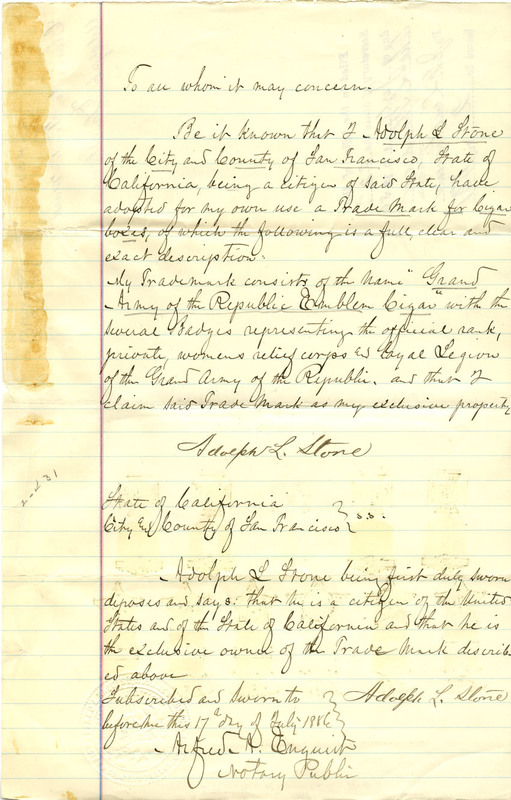 To all whom it may concern.
Be it known that I Adolph L Stone
of the City and County of San Francisco, State of
California, being a citizen of said State, have
adopted for my own use a Trade Mark for Cigar
boxes, of which the following is a full, clear and
exact description.
My Trademark consists of the name "Grand
Army of the Republic Emblem Cigar" with the
several badges representing the official rank,
private, womens relief corps and Loyal Legion
of the Grand Army of the Republic, and that I
claim said Trade Mark as my exclusive property
Adolph L. Stone
State of California
City and County of San Francisco } s.s.
Adolph L Stone being first duly sworn
deposes and says: that he is a citizen of the United
States and of the State of California and that he is
the exclusive owner of the Trade Mark describ
ed above
Subscribed and sworn to } Adolph L. Stone
before me this 17th day of July 1886 }
Alfred A. Enquist
Notary Public